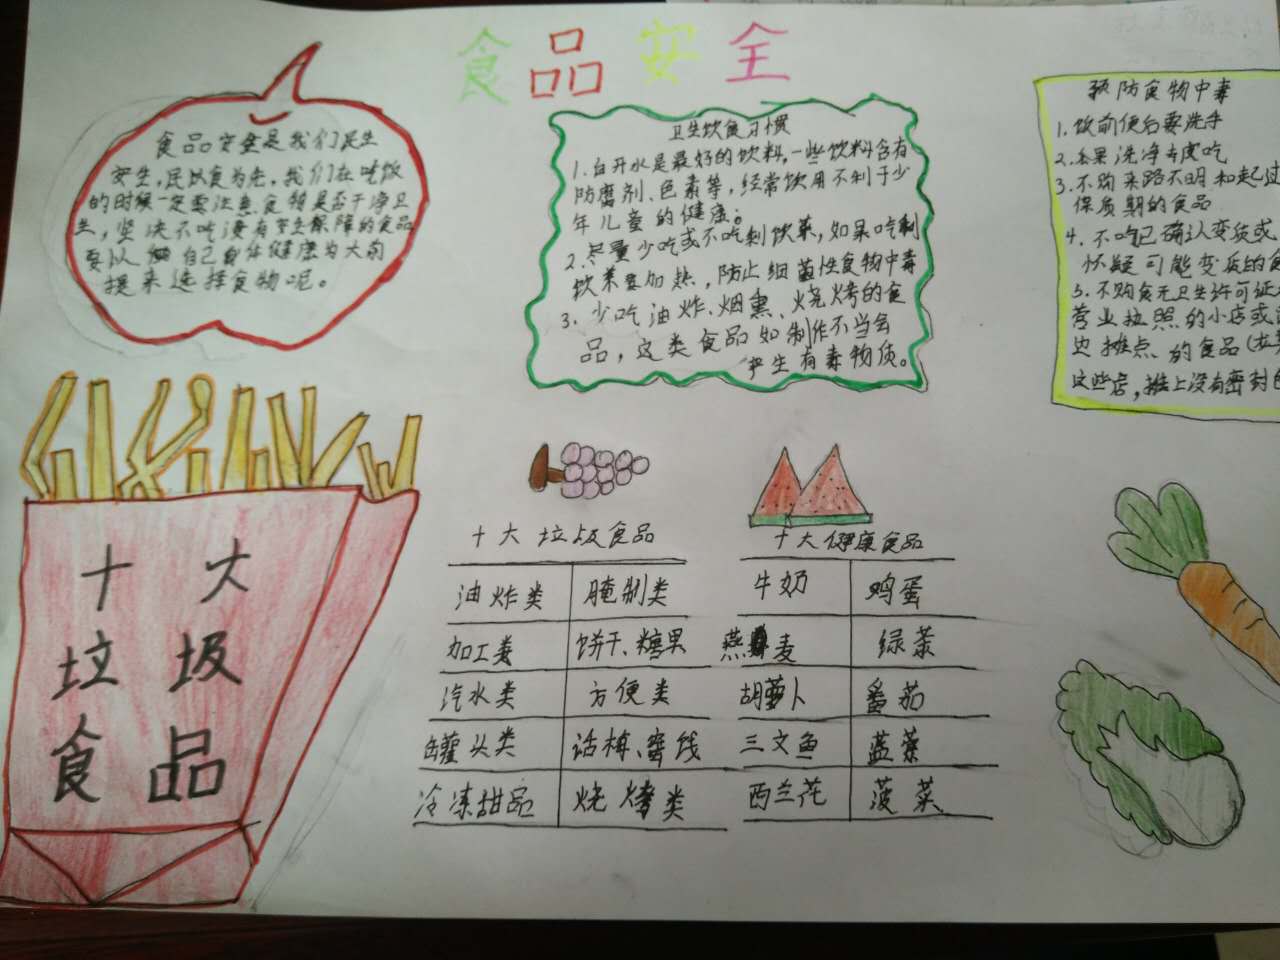 食品安全
食品安全是我们民生
安生,民以食为先,我们在吃饭
的时候一定要注意食物是否干净卫
生,坚决不吃没有安全保障的食品
要以 自己身体健康为大前
提来选择食物呢。
卫生饮食习惯
1.白开水是最好的饮料,一些饮料含有
防腐剂、色素等,经常饮用不利于少
年儿童的健康;
2.尽量少吃或不吃剩饮菜,如果吃剩
饮菜要加热,防止细菌性食物中毒
3.少吃油炸、烟熏、烧烤的食
品,这类食品如制作不当会
产生有毒物质。
预防食物中毒
1.饭前便后要洗手
2.水果洗净去皮吃
3.不购来路不明和超过
保质期的食品
4.不吃已确认变质或
怀疑可能变质的食
5.不购食无卫生许可证
营业执照的小店或
边摊点的食品(
这些店,摊上没有密封
十大
垃圾
食品
十大垃圾食品
油炸类 腌制类
加工类 饼干、糖果
汽水类 方便类
罐头类 话梅、蜜饯
冷冻甜品 烧烤类
十大健康食品
牛奶 鸡蛋
燕麦 绿茶
胡萝卜 番茄
三文鱼 蓝莱
西兰花 菠菜